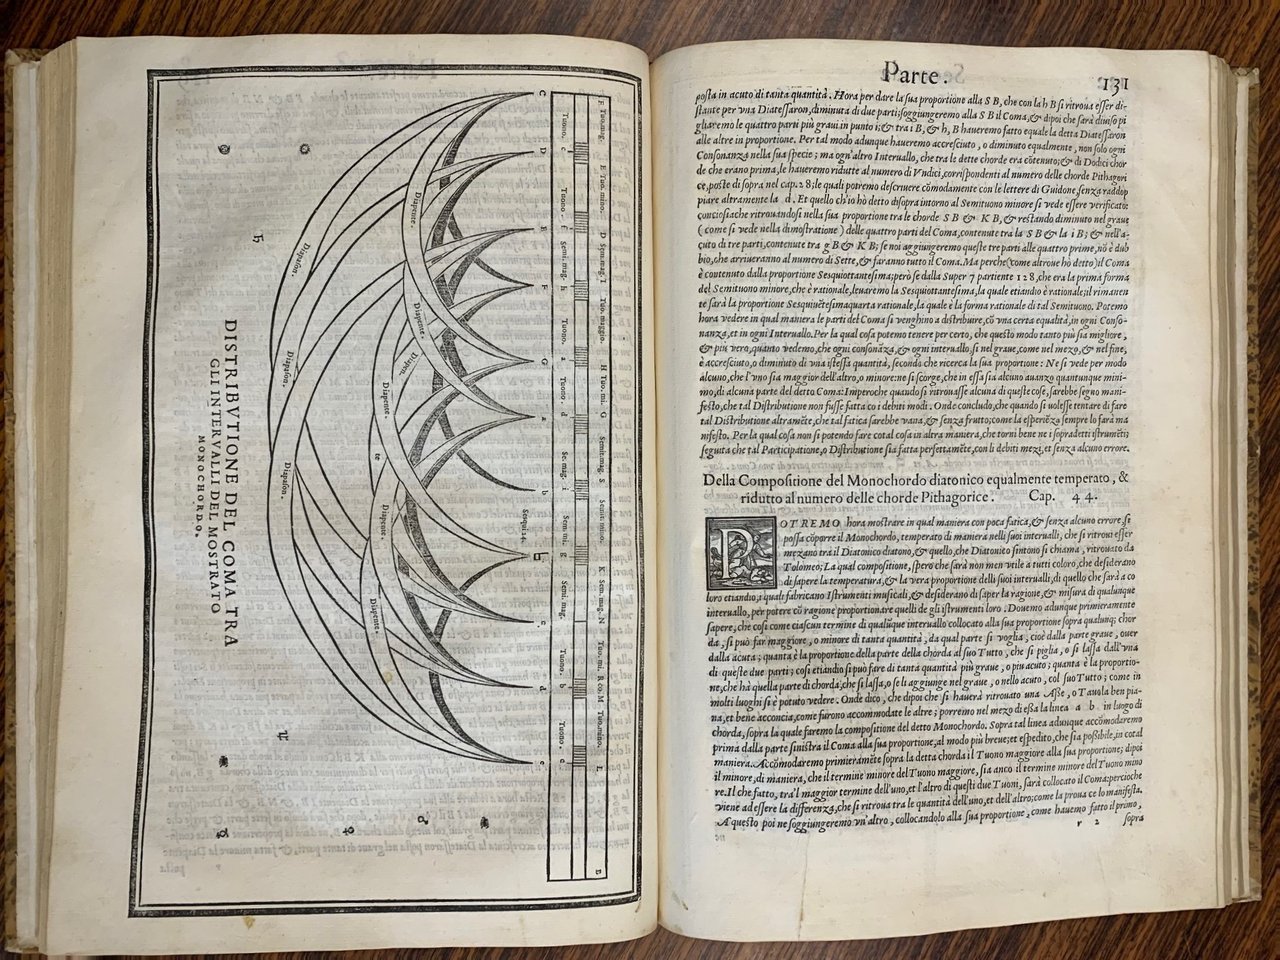 DISTRIBVTIONE DEL COMA TRA
GLI INTERVALLI DEL MOSTRATO
MONOCHORDO.
Diapason.
Diapason.
Diapason.
Diapente.
Diapente.
Diapen
te
Diapente.
Diapente.
Diapente.
C
D
E
F
G
a
b
c
d
e
Sesqui 24.
Tuono.
Tuono.
Semi. mag.
Tuono.
Tuono.
Se. mag.
Sem. mi.
Semi. mag.
Tuono.
Tuono.
Parte. 131
posta in acuto di tanta quantità. Hora per dare la sua proportione alla S B, che con la h B si ritroua esser di-
stante per vna Diatessaron, diminuta di due parti; soggiungeremo alla S B il Coma, & dipoi che sarà diuiso pi
gliaremo le quattro parti più graui in punto i; & tra i B, & h, B haueremo fatto equale la detta Diatessaron
alle altre in proportione. Per tal modo adunque haueremo accresciuto, o diminuto equalmente, non solo ogni
Consonanza nella sua specie; ma ogn'altro Interuallo, che tra le dette chorde era cōtenuto; & di Dodici chor
de che erano prima, le haueremo ridutte al numero di Vndici, corrispondenti al numero delle chorde Pithagori
ce, poste di sopra nel cap. 28; le quali potremo descriuere cōmodamente con le lettere di Guidone, senza raddop
piare altramente la d. Et quello ch'io hò detto disopra intorno al Semituono minore si vede essere verificato:
conciosiache ritrouandosi nella sua proportione tra le chorde S B & K B, & restando diminuto nel graue
(come si vede nella dimostratione) delle quattro parti del Coma, contenute tra la S B & la i B; & nell'a-
cuto di tre parti, contenute tra g B & K B; se noi aggiungeremo queste tre parti alle quattro prime, nō è dub
bio, che arriueranno al numero di Sette, & faranno tutto il Coma. Ma perche (come altroue hò detto) il Coma
è contenuto dalla proportione Sesquiottantesima; però se dalla Super 7 partiente 128, che era la prima forma
del Semituono minore, che è rationale, leuaremo la Sesquiottantesima, la quale etiandio è rationale; il rimanen
te sarà la proportione Sesquiuētesimaquarta rationale, la quale è la forma rationale di tal Semituono. Potemo
hora vedere in qual maniera le parti del Coma si venghino a distribuire, cō vna certa equalità, in ogni Conso-
nanza, et in ogni Interuallo. Per la qual cosa potemo tenere per certo, che questo modo tanto più sia migliore,
& più vero, quanto vedemo, che ogni consonāza, & ogni interuallo, sì nel graue, come nel mezo, & nel fine,
è accresciuto, o diminuto di vna istessa quantità, secondo che ricerca la sua proportione: Ne si vede per modo
alcuno, che l'vno sia maggior dell'altro, o minore: ne si scorge, che in essa sia alcuno auanzo quantunque mini-
mo, di alcuna parte del detto Coma: Imperoche quando si ritrouasse alcuna di queste cose, sarebbe segno mani-
festo, che tal Distributione non fusse fatta co i debiti modi. Onde concludo, che quando si uolesse tentare di fare
tal Distributione altramēte, che tal fatica sarebbe vana, & senza frutto; come la esperiēza sempre lo farà ma
nifesto. Per la qual cosa non si potendo fare cotal cosa in altra maniera, che torni bene ne i sopradetti istrumēti;
seguita che tal Participatione, o Distributione sia fatta perfettamēte, con li debiti mezi, et senza alcuno errore.
Della Compositione del Monochordo diatonico equalmente temperato, &
ridutto al numero delle chorde Pithagorice. Cap. 44.
POTREMO hora mostrare in qual maniera con poca fatica, & senza alcuno errore, si
possa cōporre il Monochordo, temperato di maniera nelli suoi interualli, che si ritroui esser
mezano trà il Diatonico diatono, & quello, che Diatonico sintono si chiama, ritrouato da
Tolomeo; La qual compositione, sperò che sarà non men vtile a tutti coloro, che desiderano
di sapere la temperatura, & la vera proportione delli suoi interualli, di quello che sarà a co
loro etiandio, i quali fabricano Istrumenti musicali, & desiderano di saper la ragione, & misura di qualunque
interuallo, per potere cō ragione proportionare quelli de gli istrumenti loro. Douemo adunque primieramente
sapere, che così come ciascun termine di qualūque interuallo collocato alla sua proportione sopra qualunq; chor
da, si può far maggiore, o minore di tanta quantità, da qual parte si voglia; cioè dalla parte graue, ouer
dalla acuta; quanta è la proportione della parte della chorda al suo Tutto, che si piglia, o si lassa dall'vna
di queste due parti; così etiandio si può fare di tanta quantità più graue, o più acuto; quanta è la proportio-
ne, che hà quella parte di chorda, che si lassa, o se li aggiunge nel graue, o nello acuto, col suo Tutto; come in
molti luoghi si è potuto vedere. Onde dico, che dipoi che si hauerà ritrouato vna Asse, o Tauola ben pia-
na, et bene acconcia, come furono accommodate le altre; porremo nel mezo di essa la linea a b. in luogo di
chorda, sopra la quale faremo la compositione del detto Monochordo. Sopra tal linea adunque accōmodaremo
prima dalla parte sinistra il Coma alla sua proportione, al modo più breue; et espedito, che sia possibile, in cotal
maniera. Accōmodaremo primieramēte sopra la detta chorda il Tuono maggiore alla sua proportione; dipoi
il minore, di maniera, che il termine minore del Tuono maggiore, sia anco il termine minore del Tuono mino
re. Il che fatto, tra'l maggior termine dell'uno, et l'altro di questi due Tuoni, sarà collocato il Coma: percioche
viene ad essere la differenza, che si ritroua tra le quantità dell'uno, et dell'altro; come la proua ce lo manifesta.
A questo poi ne soggiungeremo vn'altro, collocandolo alla sua proportione, come hauemo fatto il primo,
r 2 sopra